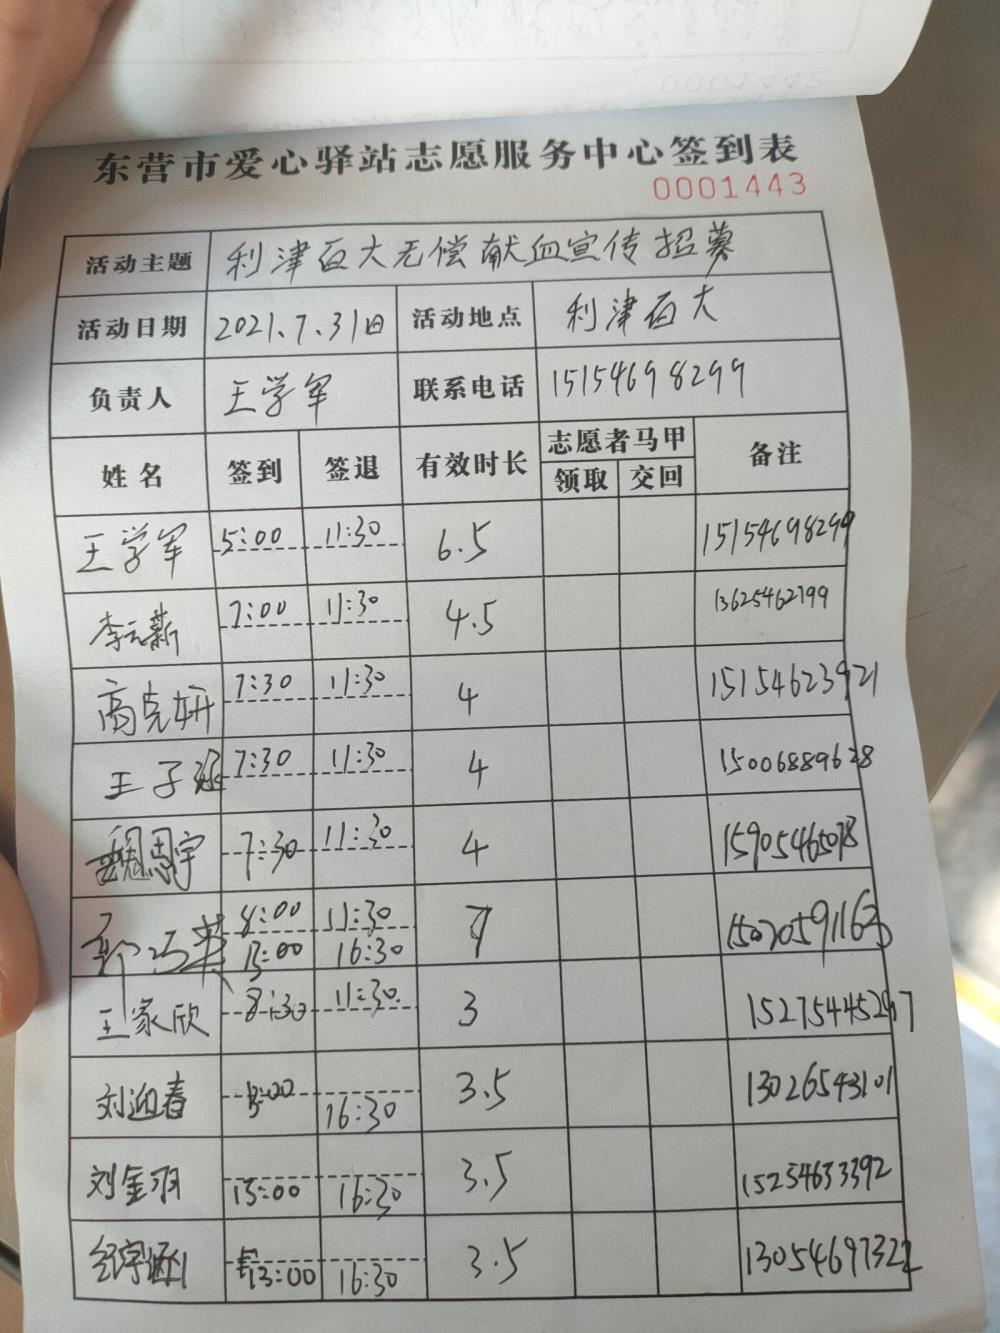 东营市爱心驿站志愿服务中心签到表
0001443
活动主题 利津百大无偿献血宣传招募
活动日期 2021.7.31日 活动地点 利津百大
负责人 王学军 联系电话 15154698299
姓名 签到 签退 有效时长 志愿者马甲 领取 交回 备注
王学军 5:00 11:30 6.5 15154698299
李元新 7:00 11:30 4.5 13625462799
高克妍 7:30 11:30 4 15154623921
王子 7:30 11:30 4 15006889628
魏恩宇 7:30 11:30 4 15905465078
郭巧英 8:00 11:30 7 15020591163
13:00 16:30
王家欣 8:30 11:30 3 15275445297
刘迎春 13:00 16:30 3.5 13026543101
刘金羽 13:00 16:30 3.5 15254633392
13:00 16:30 3.5 13054697322